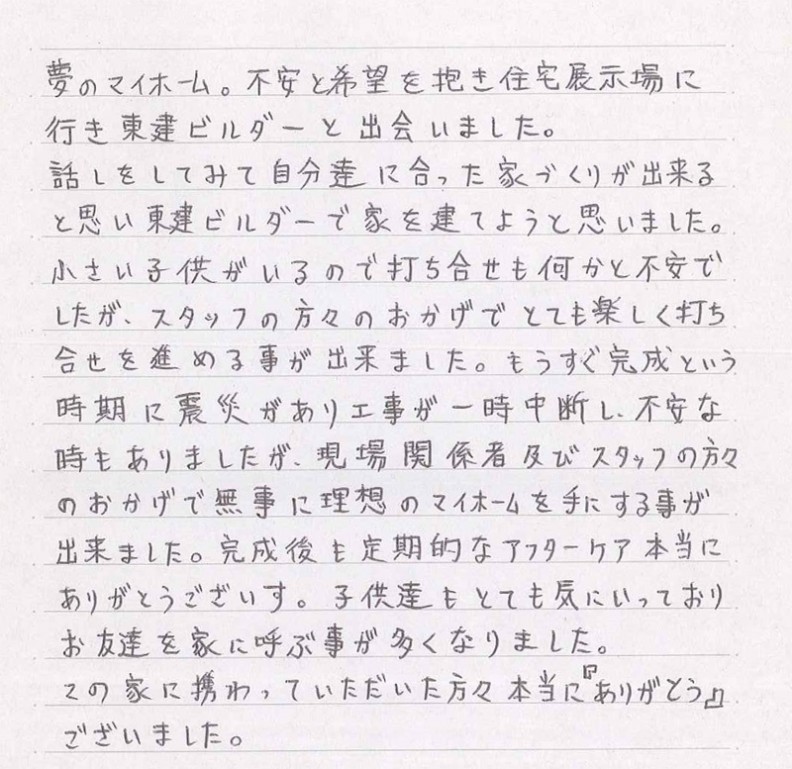 夢のマイホーム。不安と希望を抱き住宅展示場に
行き東建ビルダーと出会いました。
話しをしてみて自分達に合った家づくりが出来る
と思い東建ビルダーで家を建てようと思いました。
小さい子供がいるので打ち合せも何かと不安で
したが、スタッフの方々のおかげでとても楽しく打ち
合せを進める事が出来ました。もうすぐ完成という
時期に震災があり工事が一時中断し、不安な
時もありましたが、現場関係者及びスタッフの方々
のおかげで無事に理想のマイホームを手にする事が
出来ました。完成後も定期的なアフターケア本当に
ありがとうございます。子供達もとても気にいっており
お友達を家に呼ぶ事が多くなりました。
この家に携わっていただいた方々本当に『ありがとう』
ございました。